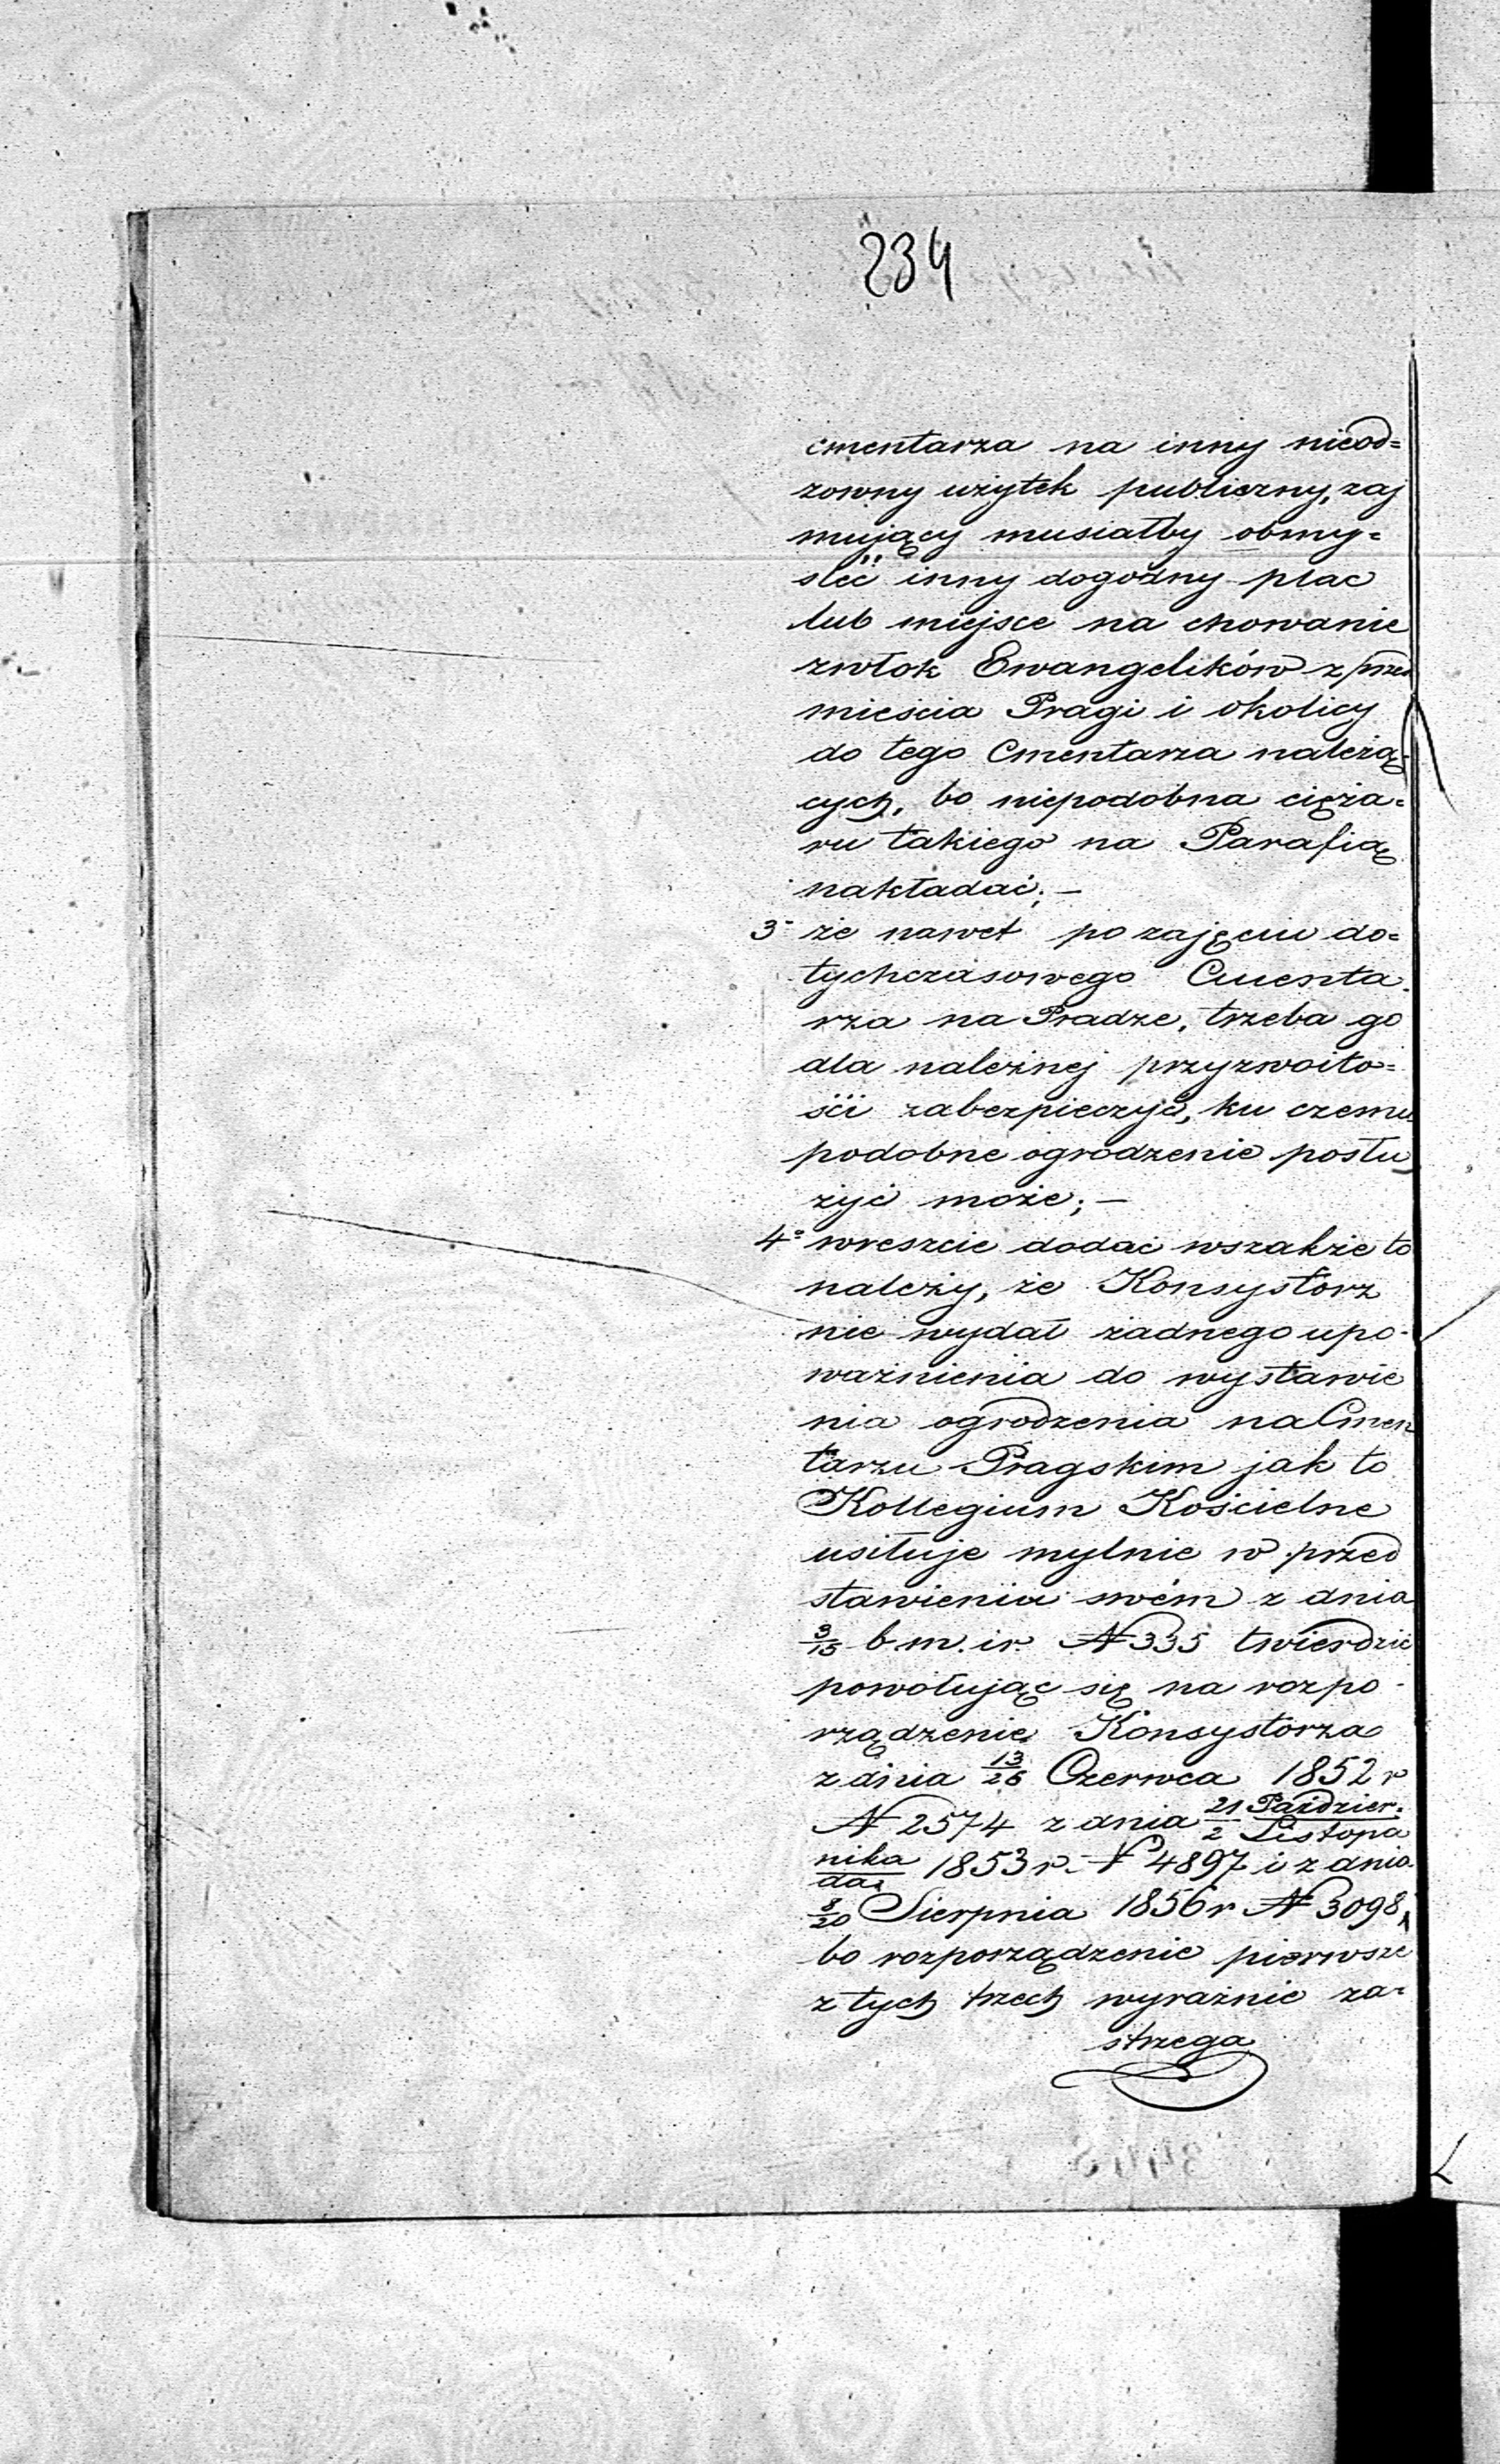 234
cmentarza na inny nieod=
zowny użytek publiczny, zaj
mujący musiałby obmy=
śleć inny dogodny plac
lub miejsce na chowanie
zwłok Ewangelików z przed
mieścia Pragi i okolicy
do tego Cmentarza należą=
cych, bo niepodobna cięża=
ru takiego na Parafię
nakładać; —
3° że nawet po zajęciu do=
tychczasowego Cmenta.
rza na Pradze, trzeba go
dla należnej przyzwoito=
ści zabezpieczyć, ku czemu
podobne ogrodzenie posłu
żyć może; —
4° wreszcie dodać wszakże to
należy, że Konsystorz
nie wydał żadnego upo-
ważnienia do wystawie
nia ogrodzenia na Cmen
tarzu Pragskim jak to
Kollegium Kościelne
usiłuje mylnie w przed
stawieniu swém z dnia
3/15 b. m. i r. N 335 twierdzić
powołując się na rozpo-
rządzenie Konsystorza
z dnia 13/25 Czerwca 1852 r
N 2574 z dnia 21/2 Paździer=/Listopa
nika/da 1853 r. N 4897 i z dnia
8/20 Sierpnia 1856 r N 3098,
bo rozporządzenie pierwsze
z tych trzech wyraźnie za=
strzega